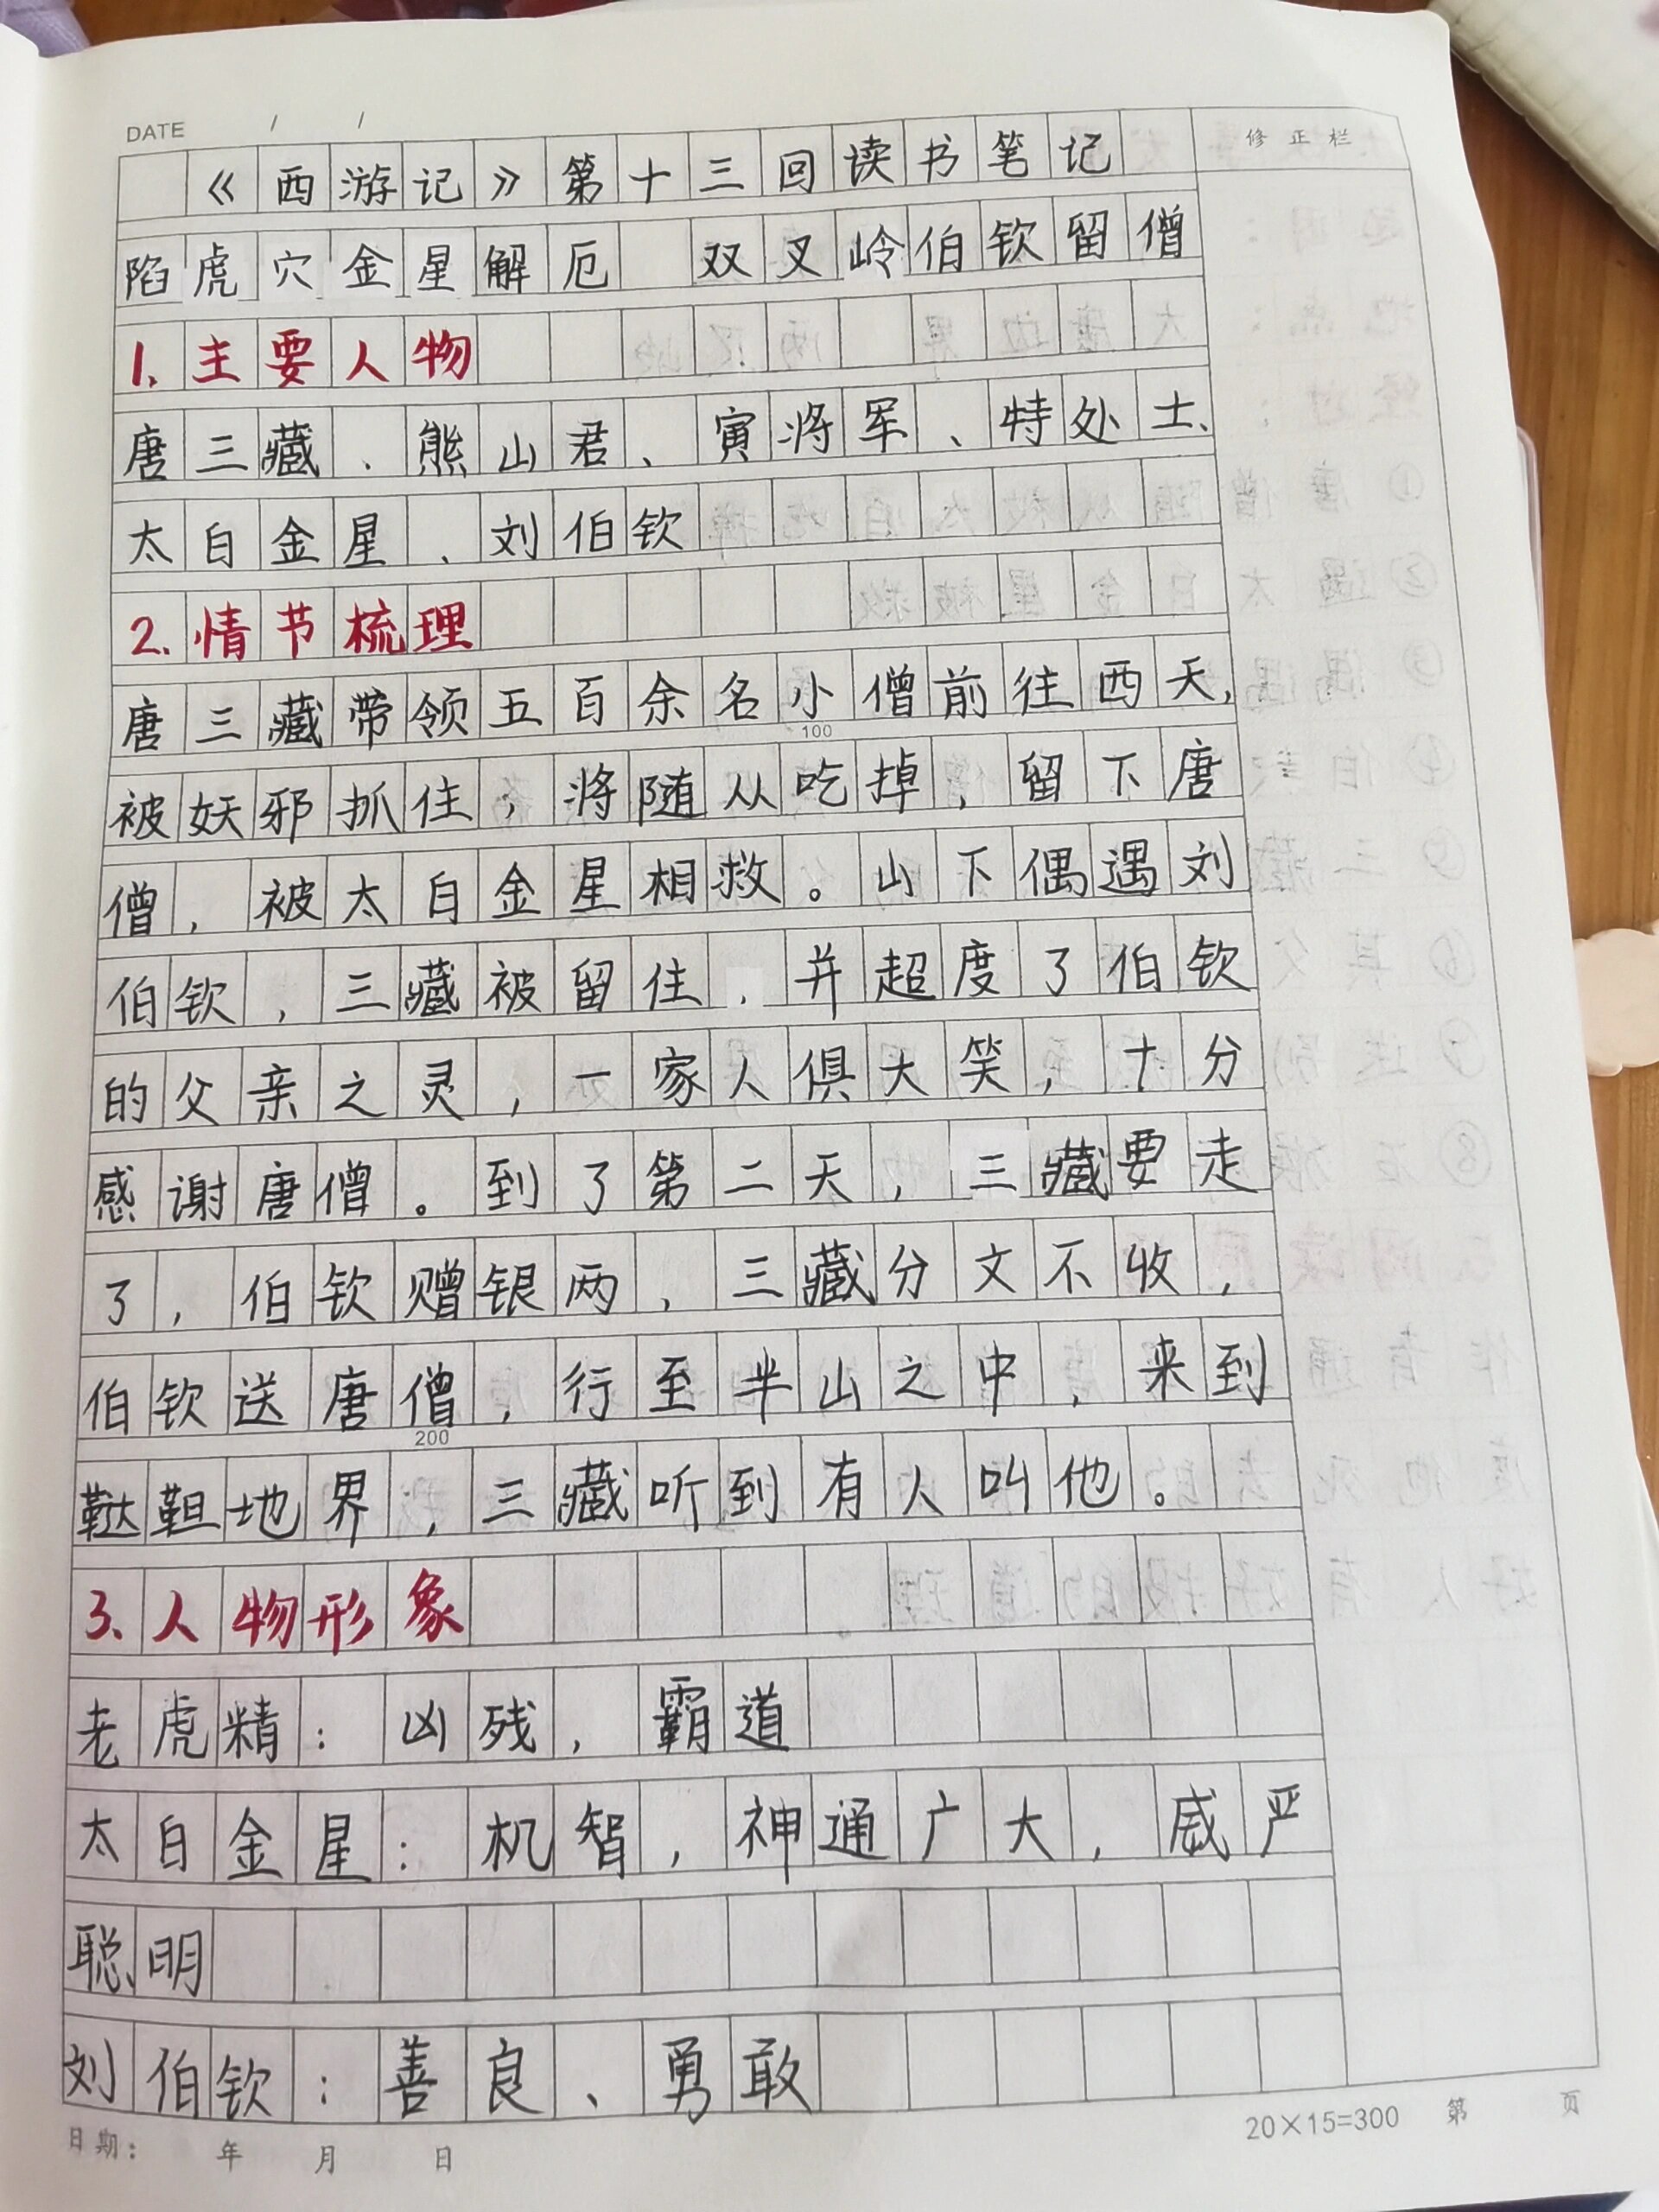 DATE / /
修正栏
《西游记》第十三回读书笔记
陷虎穴金星解厄 双叉岭伯钦留僧
1.主要人物
唐三藏、熊山君、寅将军、特处士、
太白金星、刘伯钦
2.情节梳理
唐三藏带领五百余名小僧前往西天,
被妖邪抓住，将随从吃掉，留下唐
僧，被太白金星相救。山下偶遇刘
伯钦，三藏被留住，并超度了伯钦
的父亲之灵，一家人俱大笑，十分
感谢唐僧。到了第二天，三藏要走
了，伯钦赠银两，三藏分文不收，
伯钦送唐僧，行至半山之中，来到
鞑靼地界，三藏听到有人叫他。
3.人物形象
老虎精：凶残，霸道
太白金星：机智，神通广大，威严
聪明
刘伯钦：善良、勇敢
100
200
日期： 年 月 日
20×15=300 第 页